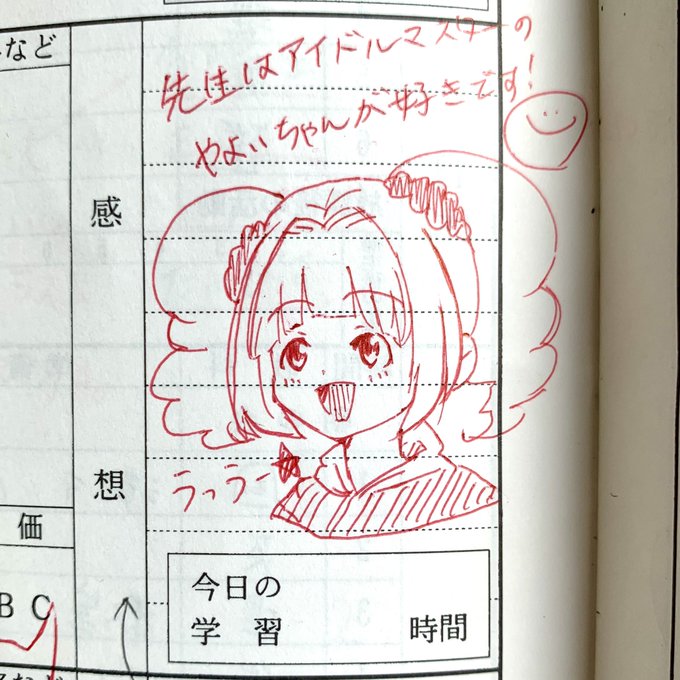 など
先生はアイドルマスターの
やよいちゃんが好きです!
感
想
ラっラー
価
B C
今日の
学 習 時間
など